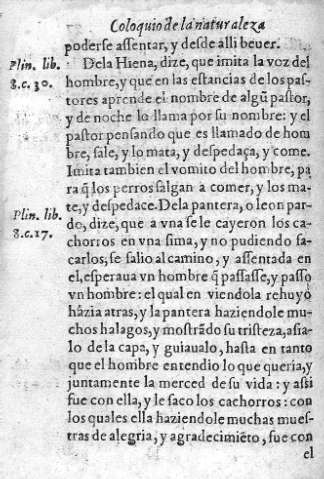 Coloquio de la naturaleza
poderse assentar, y desde alli beuer.
Plin. lib.
8.c.30.
Dela Hiena, dize, que imita la voz del
hombre, y que en las estancias de los pas-
tores aprende el nombre de algũ pastor,
y de noche lo llama por su nombre: y el
pastor pensando que es llamado de hom
bre, sale, y lo mata, y despedaça, y come.
Imita tambien el vomito del hombre, pa
ra q̃ los perros salgan a comer, y los ma-
te, y despedace. Dela pantera, o leon par-
Plin. lib.
8.c.17.
do, dize, que a vna se le cayeron los ca-
chorros en vna sima, y no pudiendo sa-
carlos, se salio al camino, y assentada en
el, esperaua vn hombre q̃ passasse, y passo
vn hombre: el qual en viendola rehuyò
házia atras, y la pantera haziendole mu-
chos halagos, y mostrãdo su tristeza, asia-
lo de la capa, y guiaualo, hasta en tanto
que el hombre entendio lo que queria, y
juntamente la merced de su vida: y assi
fue con ella, y le saco los cachorros: con
los quales ella haziendole muchas mues-
tras de alegria, y agradecimiẽto, fue con
el